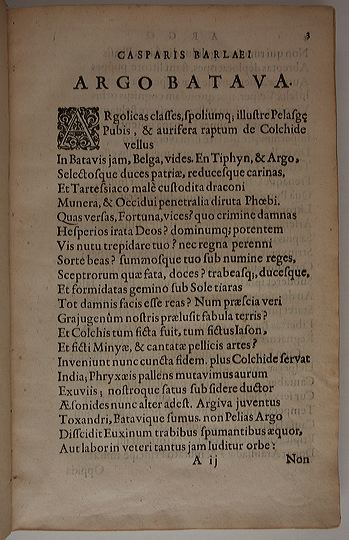 3
CASPARIS BARLAEI
ARGO BATAVA.
ARgolicas classes, spoliumq; illustre Pelasgę
Pubis, & aurifera raptum de Colchide
vellus
In Batavis jam, Belga, vides. En Tiphyn, & Argo,
Selectosque duces patriæ, reducesque carinas,
Et Tartessiaco malè custodita draconi
Munera, & Occidui penetralia diruta Phœbi.
Quas versas, Fortuna, vices? quo crimine damnas
Hesperios irata Deos? dominumq; potentem
Vis nutu trepidare tuo? nec regna perenni
Sorte beas? summosque tuo sub numine reges,
Sceptrorum quæ fata, doces? trabeasq;, ducesque,
Et formidatas gemino sub Sole tiaras
Tot damnis facis esse reas? Num præscia veri
Grajugenûm nostris prælusit fabula terris?
Et Colchis tum ficta fuit, tum fictus Iason,
Et ficti Minyæ, & cantatæ pellicis artes?
Inveniunt nunc cuncta fidem. plus Colchide servat
India, Phryxæis pallens mutavimus aurum
Exuviis, nostroque satus sub sidere ductor
Æsonides nunc alter adest. Argiva juventus
Toxandri, Batavique sumus. non Pelias Argo
Dissicidit Euxinum trabibus spumantibus æquor,
Aut labor in veteri tantus jam luditur orbe:
A ij
Non